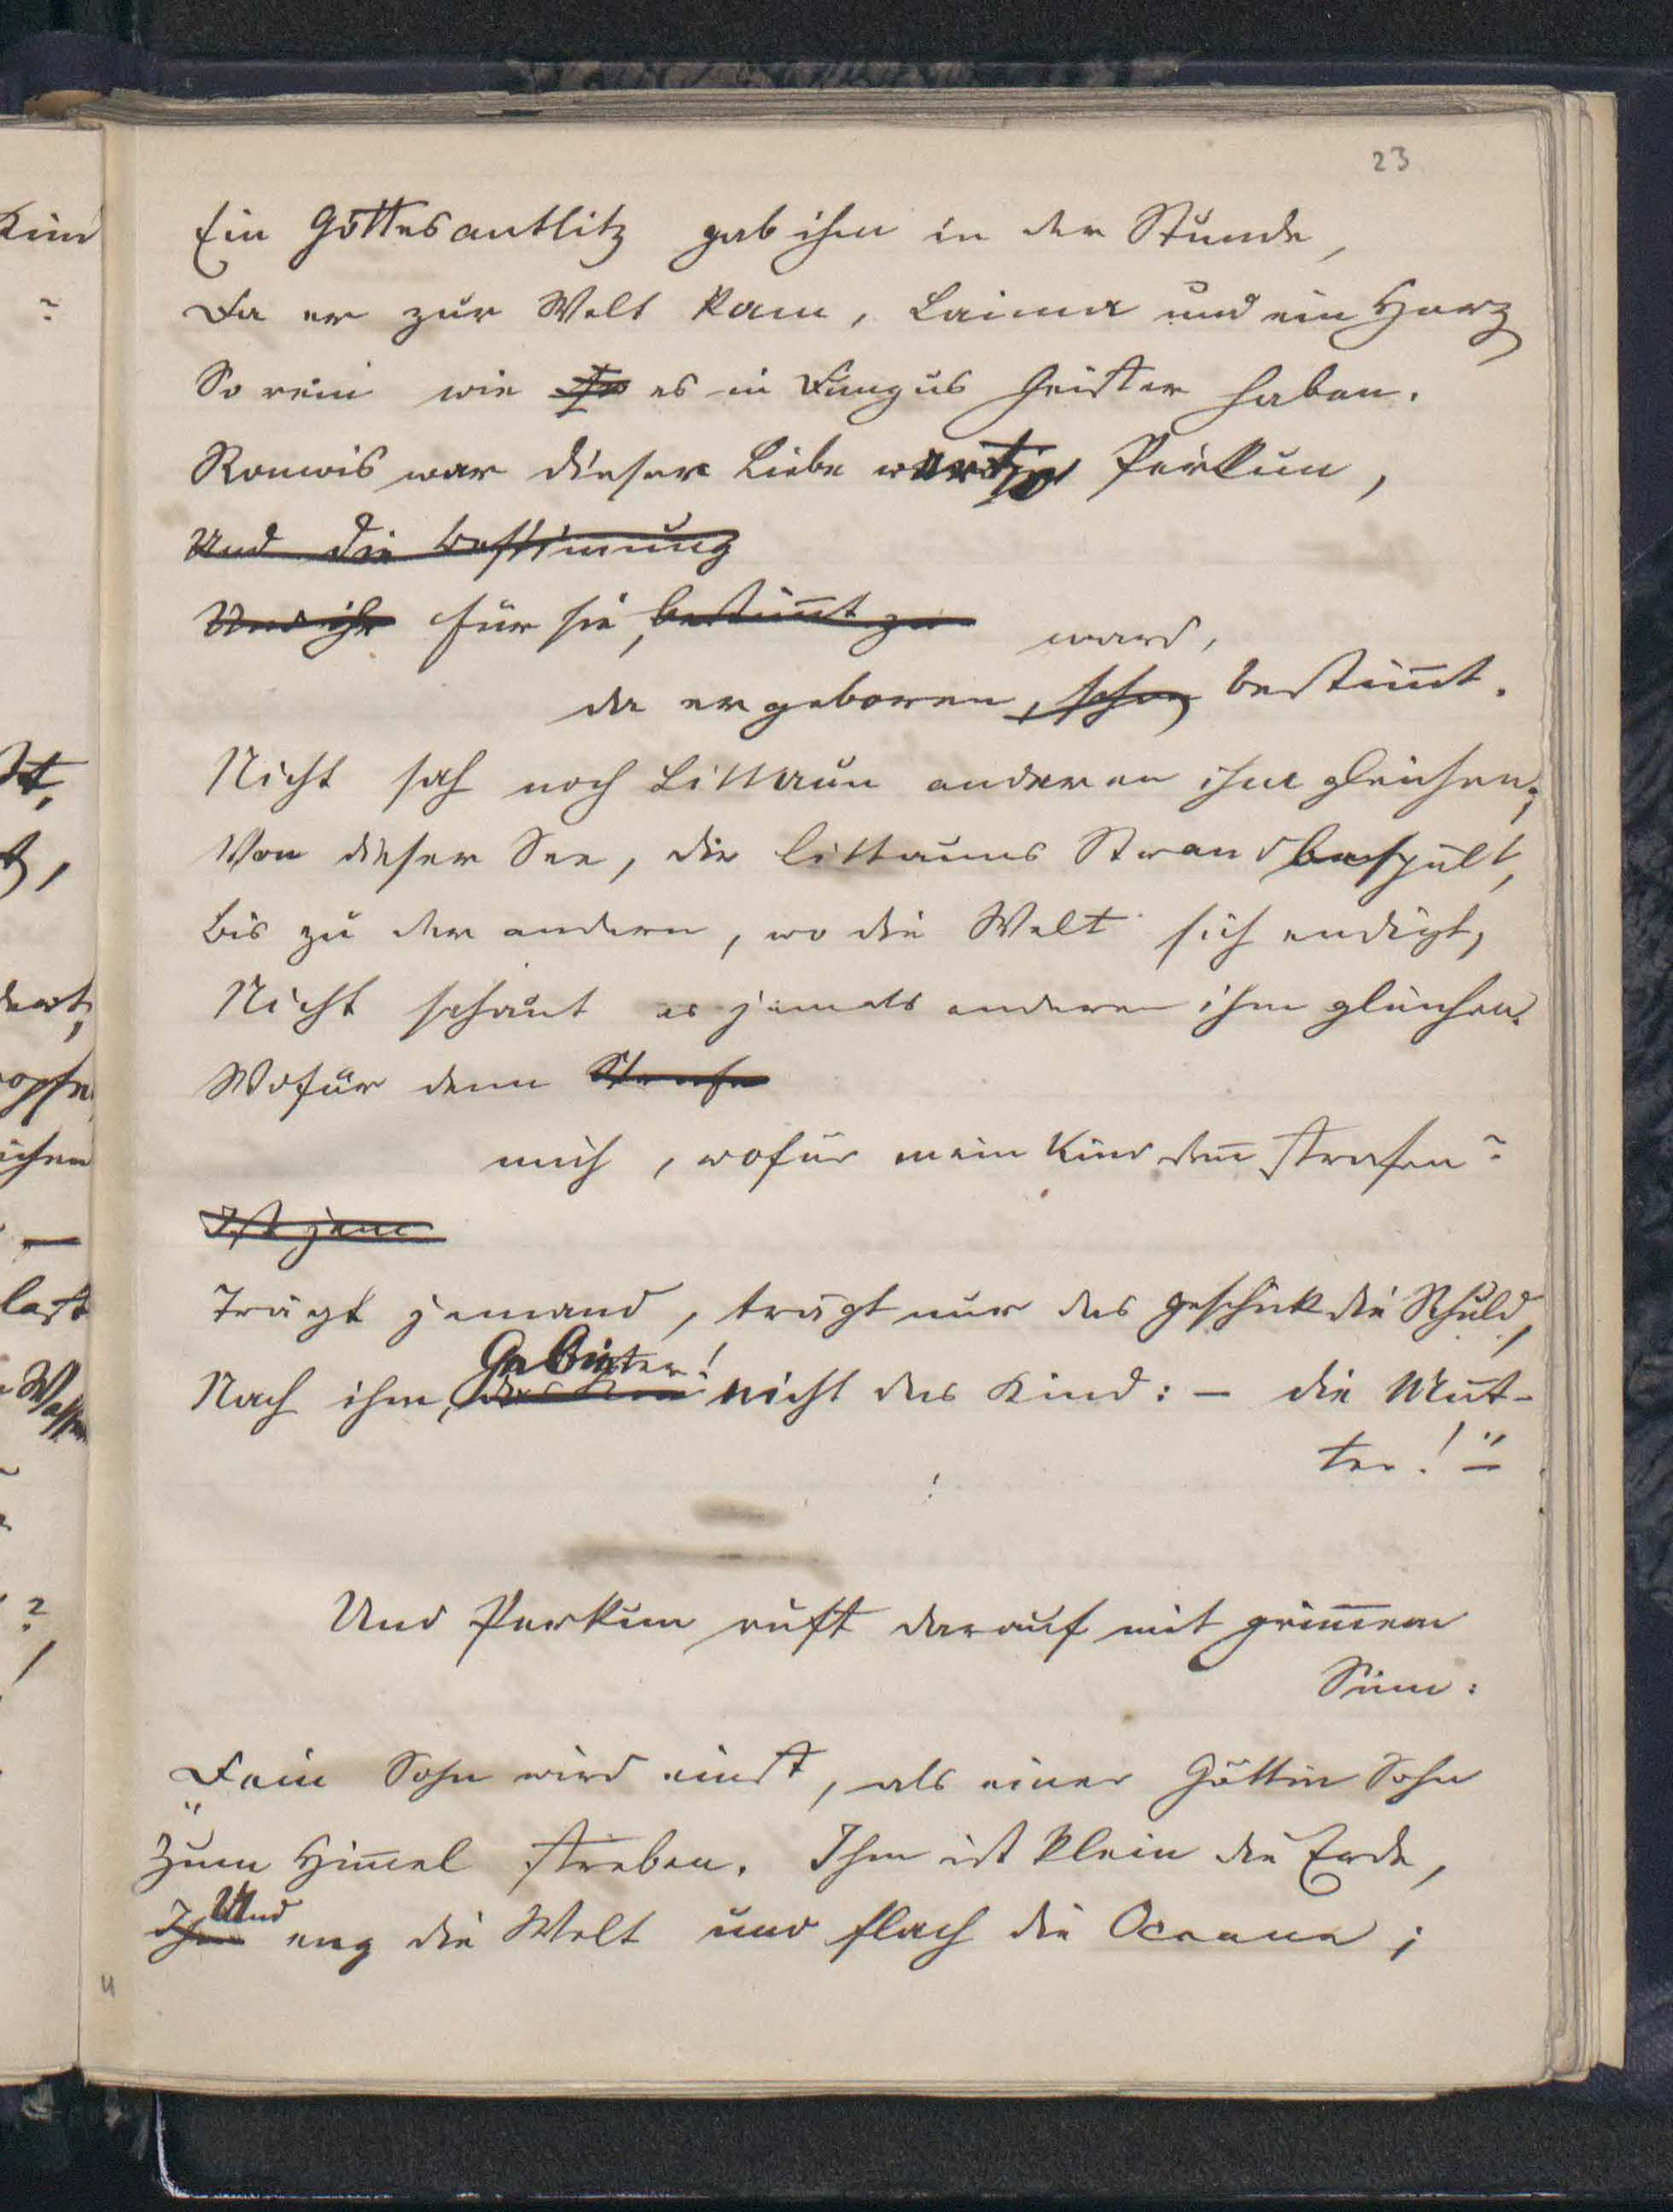 23
Ein Göttesantlitz gab ihm in der Stunde,
Da er zur Welt kam, Laima und ein Herz
So rein wie es in Dungus Geister haben.
Romois war dieser Liebe werth, Perkun,
Und die Bestimmung
Und ihr für sie, bestim̄t zu ward,
da er geboren, schon bestim̄t.
Nicht sah noch Littaun anderen ihm gleichen;
Von dieser See, die Littauns Strand bespült,
Bis zu der andern, wo die Welt sich endigt,
Nicht schaut es jemals anderen ihm gleichen.
Wofür denn Strafe
mich, wofür mein Kind den̄ strafen?
Ist jem
Trägt jemand, trägt nur das Geschick die Schuld,
Gebieter!
Nach ihm, nicht das Kind: – die Mut-
ter!"–
Und Perkun ruft darauf mit grim̄em
Sinn:
„Dein Sohn wird einst, als einer Göttin Sohn
Zum Him̄el streben. Ihm ist klein die Erde,
Und
Ihm eng die Welt und flach die Oceane;